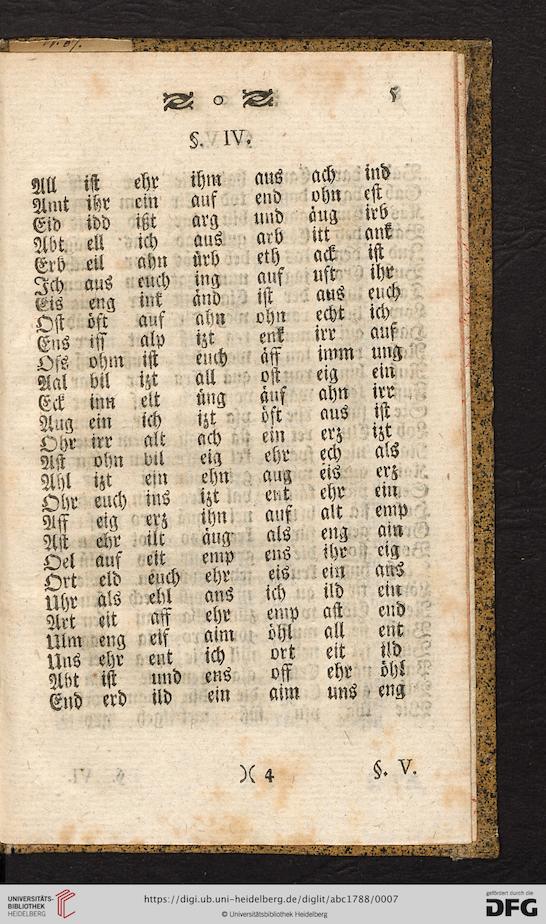 o 5
§. IV.
All ist ehr ihm aus ach ind
Amt ihr ein auf end ohn est
Eid idd ißt arg und äug irb
Abt ell ich aus arb itt ank
Erb eil ahn ürb eth ack ist
Ich aus euch ing auf uft ihr
Eis eng ink änd ist aus euch
Ost öft auf ahn ohn echt ich
Ens iff alp izt enk irr auf
Ofs ohm ist euch äff imm ung
Aal bil izt all ost eig ein
Eck inn elt üng äuf ahn irr
Aug ein ich izt öft aus ist
Ohr irr alt ach ein erz izt
Ast ohn bil eig ehr ech als
Ahl izt ein ehn aug eis erz
Ohr euch ins izt ent ehr ein
Aff eig erz ihn auf alt emp
Ast ehr ilt äug als eng ain
Oel auf eit emp ens ihr eig
Ort eld euch ehr eis ein aus
Uhr als ehl aus ich ild ein
Art eit aff ehr emp ast end
Ulm eng elf aim öhl all ent
Uns ehr ent ich ort eit ild
Abt ist und ens off ehr öhl
End erd ild ein aim uns eng
)( 4 §. V.
UNIVERSITÄTS-
BIBLIOTHEK
HEIDELBERG
https://digi.ub.uni-heidelberg.de/diglit/abc1788/0007
© Universitätsbibliothek Heidelberg
gefördert durch die
DFG